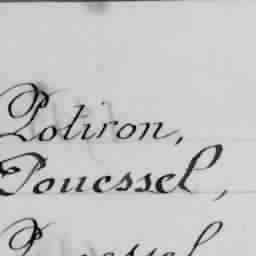 Potiron,
Pouessel,